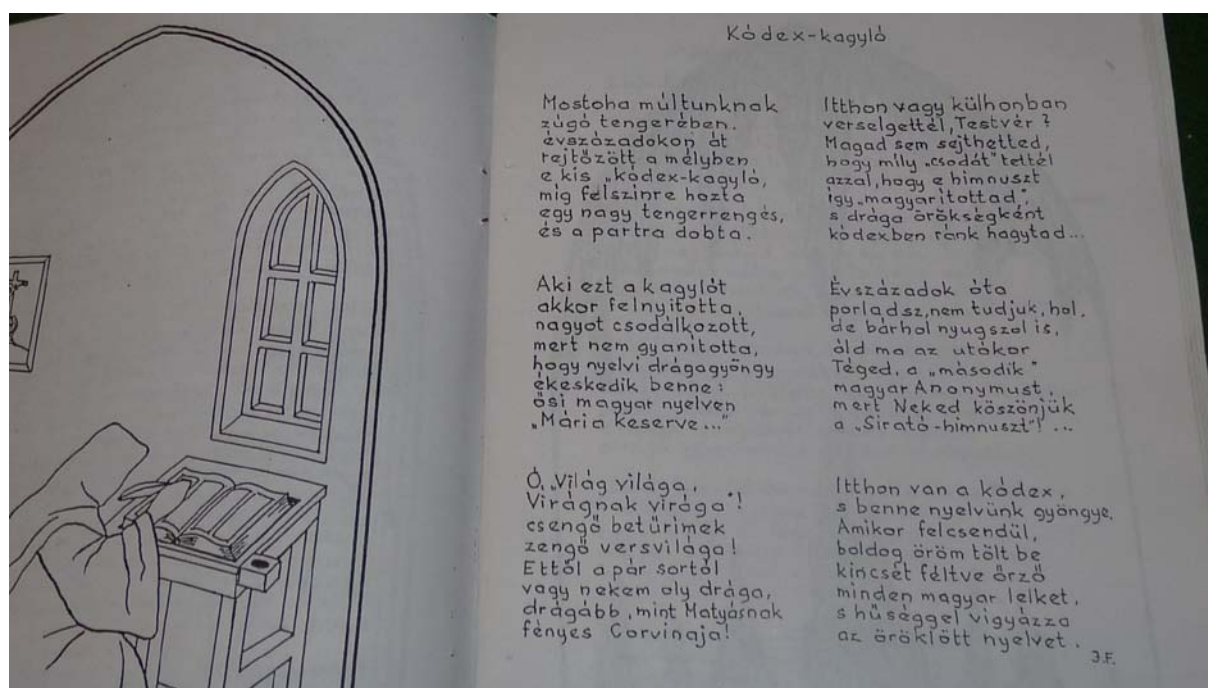 Kódex-kagyló
Mostoha múltunknak
zúgó tengerében.
évszázadokon át
rejtőzött a mélyben
e kis „kódex-kagyló,
míg felszínre hozta
egy nagy tengerrengés,
és a partra dobta.
Aki ezt a kagylót
akkor felnyitotta,
nagyot csodálkozott,
mert nem gyanította,
hogy nyelvi drágagyöngy
ékeskedik benne:
ősi magyar nyelven
„Mária keserve..."
Ó „Világ világa,
Virágnak virága"!
csengő betűrímek
zengő versvilága!
Ettől a pár sortól
vagy nekem oly drága,
drágább, mint Matyásnak
fényes Corvinaja!
Itthon vagy külhonban
verselgettél, Testvér?
Magad sem sejthetted,
hogy mily „csodát" tettél
azzal, hogy e himnuszt
így „magyarítottad",
s drága örökségként
kódexben ránk hagytad...
Évszázadok óta
porladsz, nem tudjuk, hol,
de bárhol nyugszol is,
áld ma az utókor
Téged, a „második"
magyar Anonymust,
mert Neked köszönjük
a „Sirató-himnuszt"! ...
Itthon van a kódex,
s benne nyelvünk gyöngye.
Amikor felcsendül,
boldog öröm tölt be
kincsét féltve őrző
minden magyar lelket,
s hűséggel vigyázza
az öröklött nyelvet.
J.F.